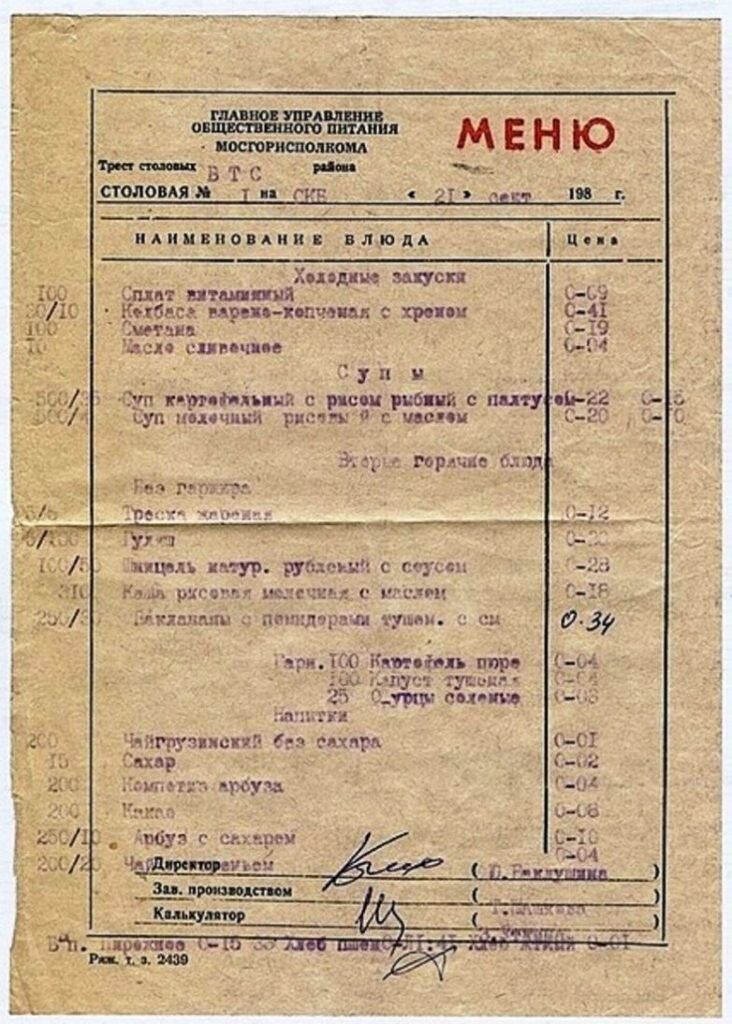 ГЛАВНОЕ УПРАВЛЕНИЕ
ОБЩЕСТВЕННОГО ПИТАНИЯ
МОСГОРИСПОЛКОМА
МЕНЮ
Трест столовых ВТС района
СТОЛОВАЯ № I на СКБ « 21 » сент 198 г.
НАИМЕНОВАНИЕ БЛЮДА Цена
Холодные закуски
100 Сплат витаминный 0-09
30/10 Колбаса варено-копченая с хреном 0-41
100 Сметана 0-19
10 Масло сливочное 0-04
Супы
500/35 Суп картофельный с рисом рыбный с палтусом 0-22
Суп молочный рисовый с маслом 0-20 0-10
Вторые горячие блюда
Без гарнира
Треска жареная 0-12
Гуляш
100/50 Шницель натур. рубленый с соусом 0-28
310 Каша рисовая молочная с маслом 0-18
250/30 Баклажаны с помидорами тушен. с см 0.34
Гарн. 100 Картофель пюре 0-04
100 Капуст тушеная
25 О_урцы соленые 0-03
Напитки
200 Чайгрузинский без сахара 0-01
15 Сахар 0-02
200 Компетиз арбуза 0-04
200 Какао 0-08
250/10 Арбуз с сахаром 0-10
200/20 Чай 0-04
Директор ( Ю.Баклушина )
Зав. производством ( )
Калькулятор ( )
Пирожное 0-15 Хлеб 0-01
Ряж. т. з. 2439